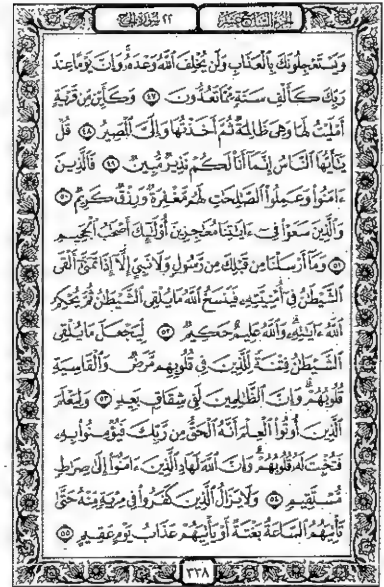 الجزء السابع عشر
٢٢ سورة الحج
وَيَسْتَعْجِلُونَكَ بِالْعَذَابِ وَلَن يُخْلِفَ اللَّهُ وَعْدَهُ وَإِنَّ يَوْمًا عِندَ
رَبِّكَ كَأَلْفِ سَنَةٍ مِّمَّا تَعُدُّونَ ٤٧ وَكَأَيِّن مِّن قَرْيَةٍ
أَمْلَيْتُ لَهَا وَهِيَ ظَالِمَةٌ ثُمَّ أَخَذْتُهَا وَإِلَيَّ الْمَصِيرُ ٤٨ قُلْ
يَا أَيُّهَا النَّاسُ إِنَّمَا أَنَا لَكُمْ نَذِيرٌ مُّبِينٌ ٤٩ فَالَّذِينَ
ءَامَنُوا وَعَمِلُوا الصَّالِحَاتِ لَهُم مَّغْفِرَةٌ وَرِزْقٌ كَرِيمٌ ٥٠
وَالَّذِينَ سَعَوْا فِي ءَايَاتِنَا مُعَاجِزِينَ أُولَٰئِكَ أَصْحَابُ الْجَحِيمِ
٥١ وَمَا أَرْسَلْنَا مِن قَبْلِكَ مِن رَّسُولٍ وَلَا نَبِيٍّ إِلَّا إِذَا تَمَنَّىٰ أَلْقَى
الشَّيْطَانُ فِي أُمْنِيَّتِهِ فَيَنسَخُ اللَّهُ مَا يُلْقِي الشَّيْطَانُ ثُمَّ يُحْكِمُ
اللَّهُ ءَايَاتِهِ وَاللَّهُ عَلِيمٌ حَكِيمٌ ٥٢ لِّيَجْعَلَ مَا يُلْقِي
الشَّيْطَانُ فِتْنَةً لِّلَّذِينَ فِي قُلُوبِهِم مَّرَضٌ وَالْقَاسِيَةِ
قُلُوبُهُمْ وَإِنَّ الظَّالِمِينَ لَفِي شِقَاقٍ بَعِيدٍ ٥٣ وَلِيَعْلَمَ
الَّذِينَ أُوتُوا الْعِلْمَ أَنَّهُ الْحَقُّ مِن رَّبِّكَ فَيُؤْمِنُوا بِهِ
فَتُخْبِتَ لَهُ قُلُوبُهُمْ وَإِنَّ اللَّهَ لَهَادِ الَّذِينَ ءَامَنُوا إِلَىٰ صِرَاطٍ
مُّسْتَقِيمٍ ٥٤ وَلَا يَزَالُ الَّذِينَ كَفَرُوا فِي مِرْيَةٍ مِّنْهُ حَتَّىٰ
تَأْتِيَهُمُ السَّاعَةُ بَغْتَةً أَوْ يَأْتِيَهُمْ عَذَابُ يَوْمٍ عَقِيمٍ ٥٥
٣٣٨